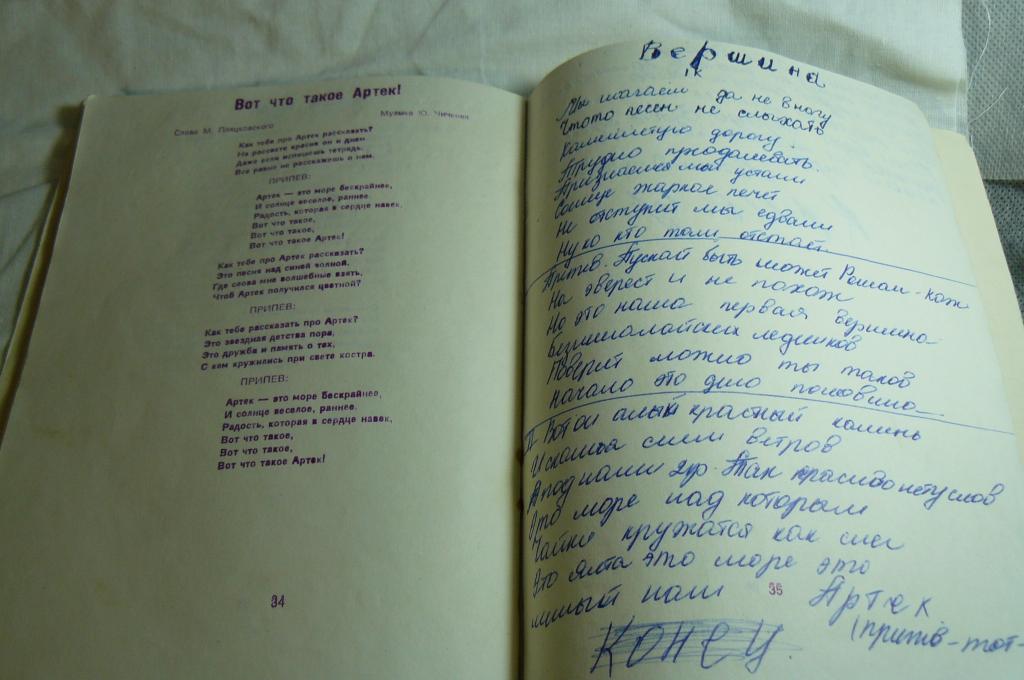 Вот что такое Артек!
Слова М. Пляцковского
Музыка Ю. Чичкова
Как тебе про Артек рассказать?
На рассвете красив он и днем.
Даже если испишешь тетрадь,
Все равно не расскажешь о нем.
ПРИПЕВ:
Артек — это море бескрайнее,
И солнце веселое, раннее.
Радость, которая в сердце навек,
Вот что такое,
Вот что такое,
Вот что такое Артек!
Как тебе про Артек рассказать?
Это песня над синей волной.
Где слова мне волшебные взять,
Чтоб Артек получился цветной?
ПРИПЕВ:
Как тебе рассказать про Артек?
Это звездная детства пора,
Это дружба и память о тех,
С кем кружились при свете костра.
ПРИПЕВ:
Артек — это море бескрайнее,
И солнце веселое, раннее.
Радость, которая в сердце навек,
Вот что такое,
Вот что такое,
Вот что такое Артек!
34
Вершина
Мы шагаем да не в ногу
Чтото песен не слыхать
Каменистую дорогу
Трудно преодалевать.
Признаемся мы устали
Солнце жаркое печёт
Не отступим мы едвали
Ну ко кто там отстаёт
Припев. Пускай быть может Роман-кош
На эверест и не похож
Но это наша первая вершина
Безгималайских ледников
Поверь можно ты таков
Начало это дело половина
II Вот он алый красный камень
И скамья семи ветров
А под нами Так красиво нету слов
Это море над которым
Чайки кружатся как снег
Это Ялта это море это
милый наш Артек
35
(припев-тот-
Конец